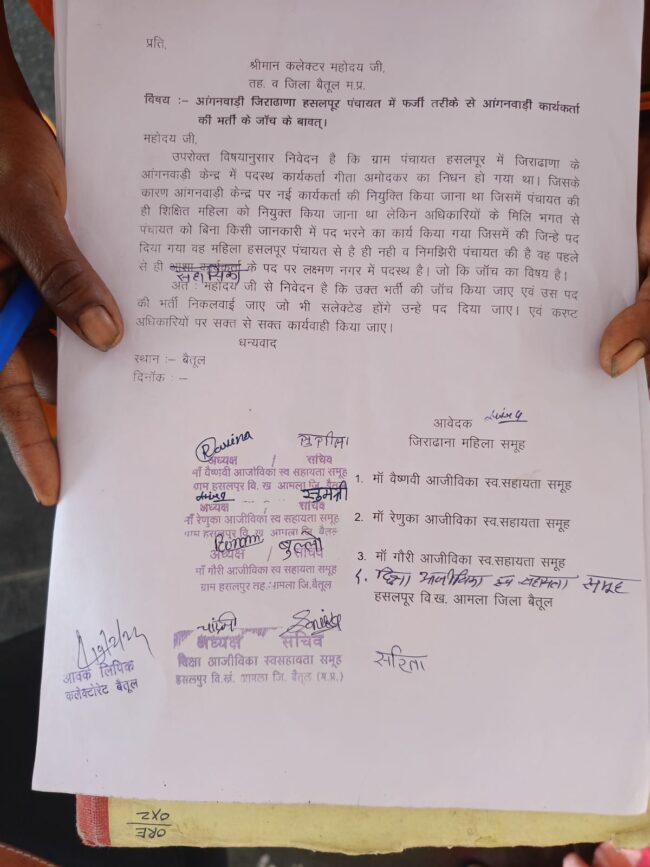 प्रति,
श्रीमान कलेक्टर महोदय जी,
तह. व जिला बैतूल म.प्र.
विषय :– आंगनवाड़ी जिराढाणा हसलपूर पंचायत में फर्जी तरीके से आंगनवाड़ी कार्यकर्ता
की भर्ती के जॉच के बावत्।
महोदय जी,
उपरोक्त विषयानुसार निवेदन है कि ग्राम पंचायत हसलपूर में जिराढाणा के
आंगनवाड़ी केन्द्र में पदस्थ कार्यकर्ता गीता अमोदकर का निधन हो गया था। जिसके
कारण आंगनवाड़ी केन्द्र पर नई कार्यकर्ता की नियुक्ति किया जाना था जिसमें पंचायत की
ही शिक्षित महिला को नियुक्त किया जाना था लेकिन अधिकारियों के मिलि भगत से
पंचायत को बिना किसी जानकारी में पद भरने का कार्य किया गया जिसमें की जिन्हे पद
दिया गया वह महिला हसलपूर पंचायत से है ही नही व निमझिरी पंचायत की है वह पहले
से ही आशा कार्यकर्ता के पद पर लक्ष्मण नगर में पदस्थ है। जो कि जॉच का विषय है।
सहायिका
अतः महोदय जी से निवेदन है कि उक्त भर्ती की जॉच किया जाए एवं उस पद
की भर्ती निकलवाई जाए जो भी सलेक्टेड होंगे उन्हे पद दिया जाए। एवं करप्ट
अधिकारियों पर सक्त से सक्त कार्यवाही किया जाए।
धन्यवाद
स्थान :– बैतूल
दिनॉक : –
आवेदक
जिराढाना महिला समूह
Ravina सुशीला
अध्यक्ष / सचिव
माँ वैष्णवी आजीविका स्व सहायता समूह
ग्राम हसलपुर वि. ख आमला जि. बैतूल
1. मॉ वैष्णवी आजीविका स्व.सहायता समूह
अध्यक्ष / सचिव
माँ रेणुका आजीविका स्व सहायता समूह
ग्राम हसलपुर वि. ख आमला जि. बैतूल
2. मॉ रेणुका आजीविका स्व.सहायता समूह
अध्यक्ष / सचिव
माँ गौरी आजीविका स्व सहायता समूह
ग्राम हसलपुर तह.:आमला जि.बैतूल
3. मॉ गौरी आजीविका स्व.सहायता समूह
४. दिक्षा आजीविका स्व सहायता समूह
हसलपूर वि.ख. आमला जिला बैतूल
अध्यक्ष सचिव
दिक्षा आजीविका स्वसहायता समूह
हसलपुर वि.खं. आमला जि. बैतूल (म.प्र.)
सरिता
आवक लिपिक
कलेक्टोरेट बैतूल